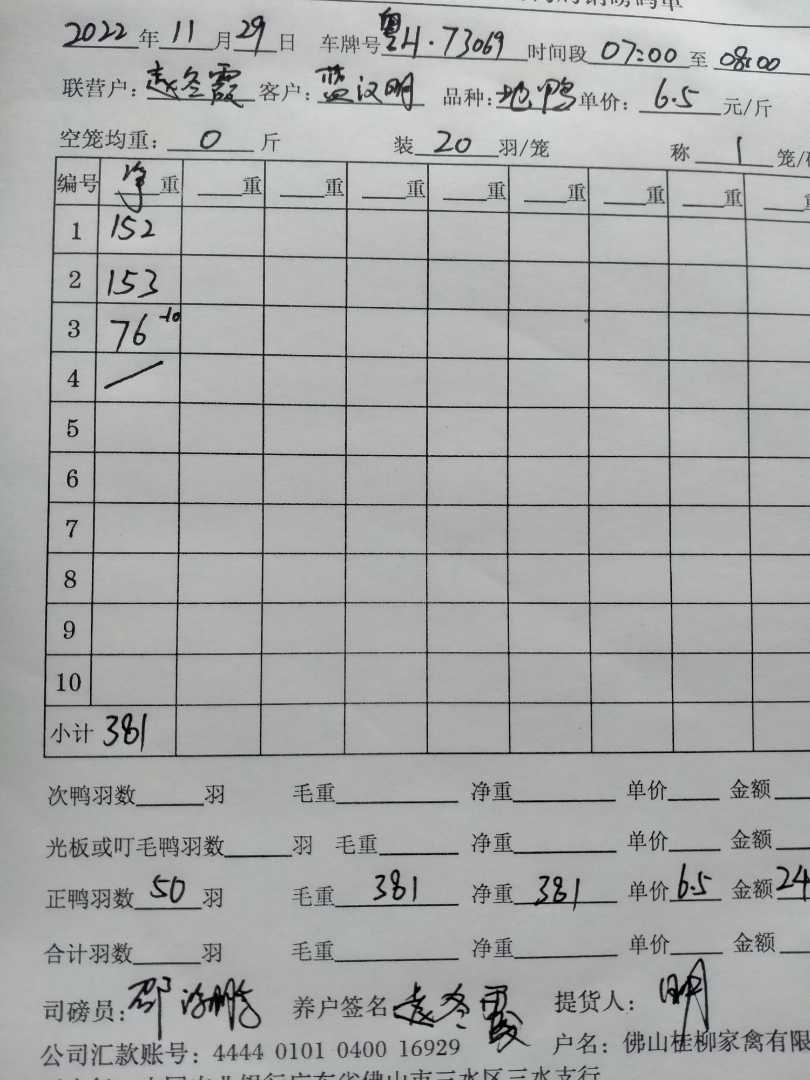 磅码单
2022年11月29日 车牌号粤H·73069时间段07:00至08:00
联营户:赵冬霞客户:蓝汉明 品种:地鸭单价:6.5元/斤
空笼均重:0斤 装20羽/笼 称1笼/
编号 净重 重 重 重 重 重 重 重
1 152
2 153
3 76 -10
4 /
5
6
7
8
9
10
小计 381
次鸭羽数 羽 毛重 净重 单价 金额
光板或叮毛鸭羽数 羽 毛重 净重 单价 金额
正鸭羽数50羽 毛重381 净重381 单价6.5金额24
合计羽数 羽 毛重 净重 单价 金额
司磅员: 养户签名 提货人:明
公司汇款账号:4444 0101 0400 16929 户名:佛山桂柳家禽有限